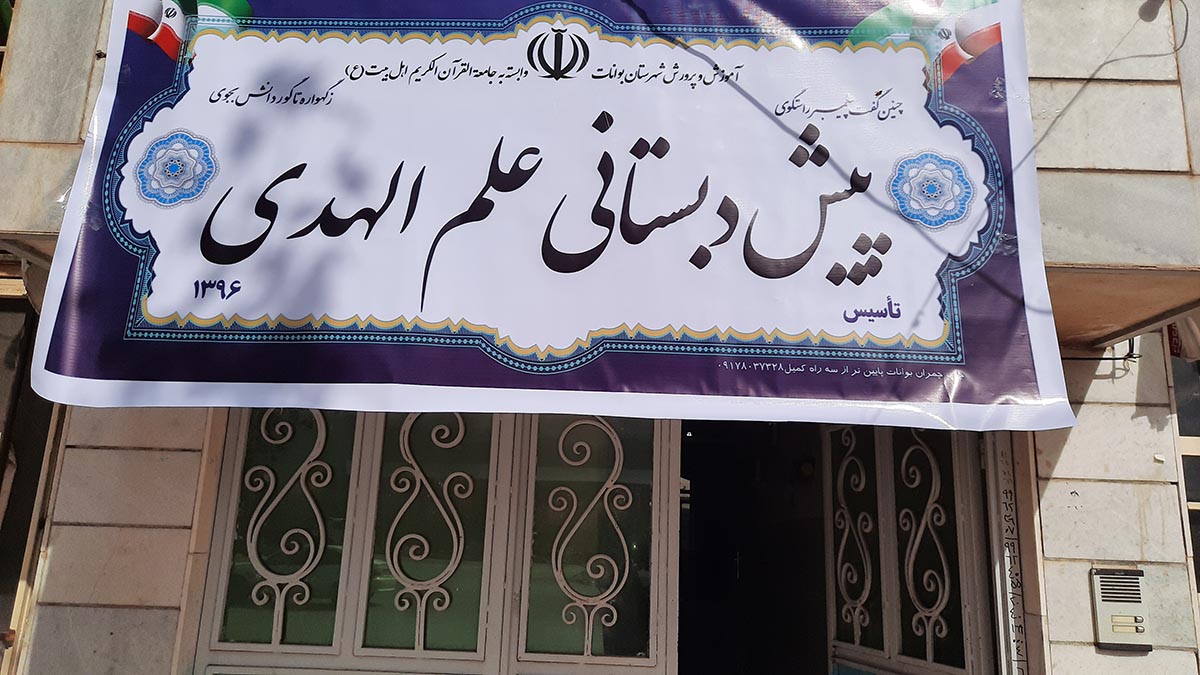 آموزش و پرورش شهرستان بوانات وابسته به جامعة القرآن الکریم اهل بیت (ع)
چنین گفت پیمبر راستگوی زگهواره تا گور دانش بجوی
پیش دبستانی علم الهدی
تأسیس ۱۳۹۶
چمران بوانات پایین تر از سه راه کمیل ۰۹۱۷۸۰۳۷۳۲۸